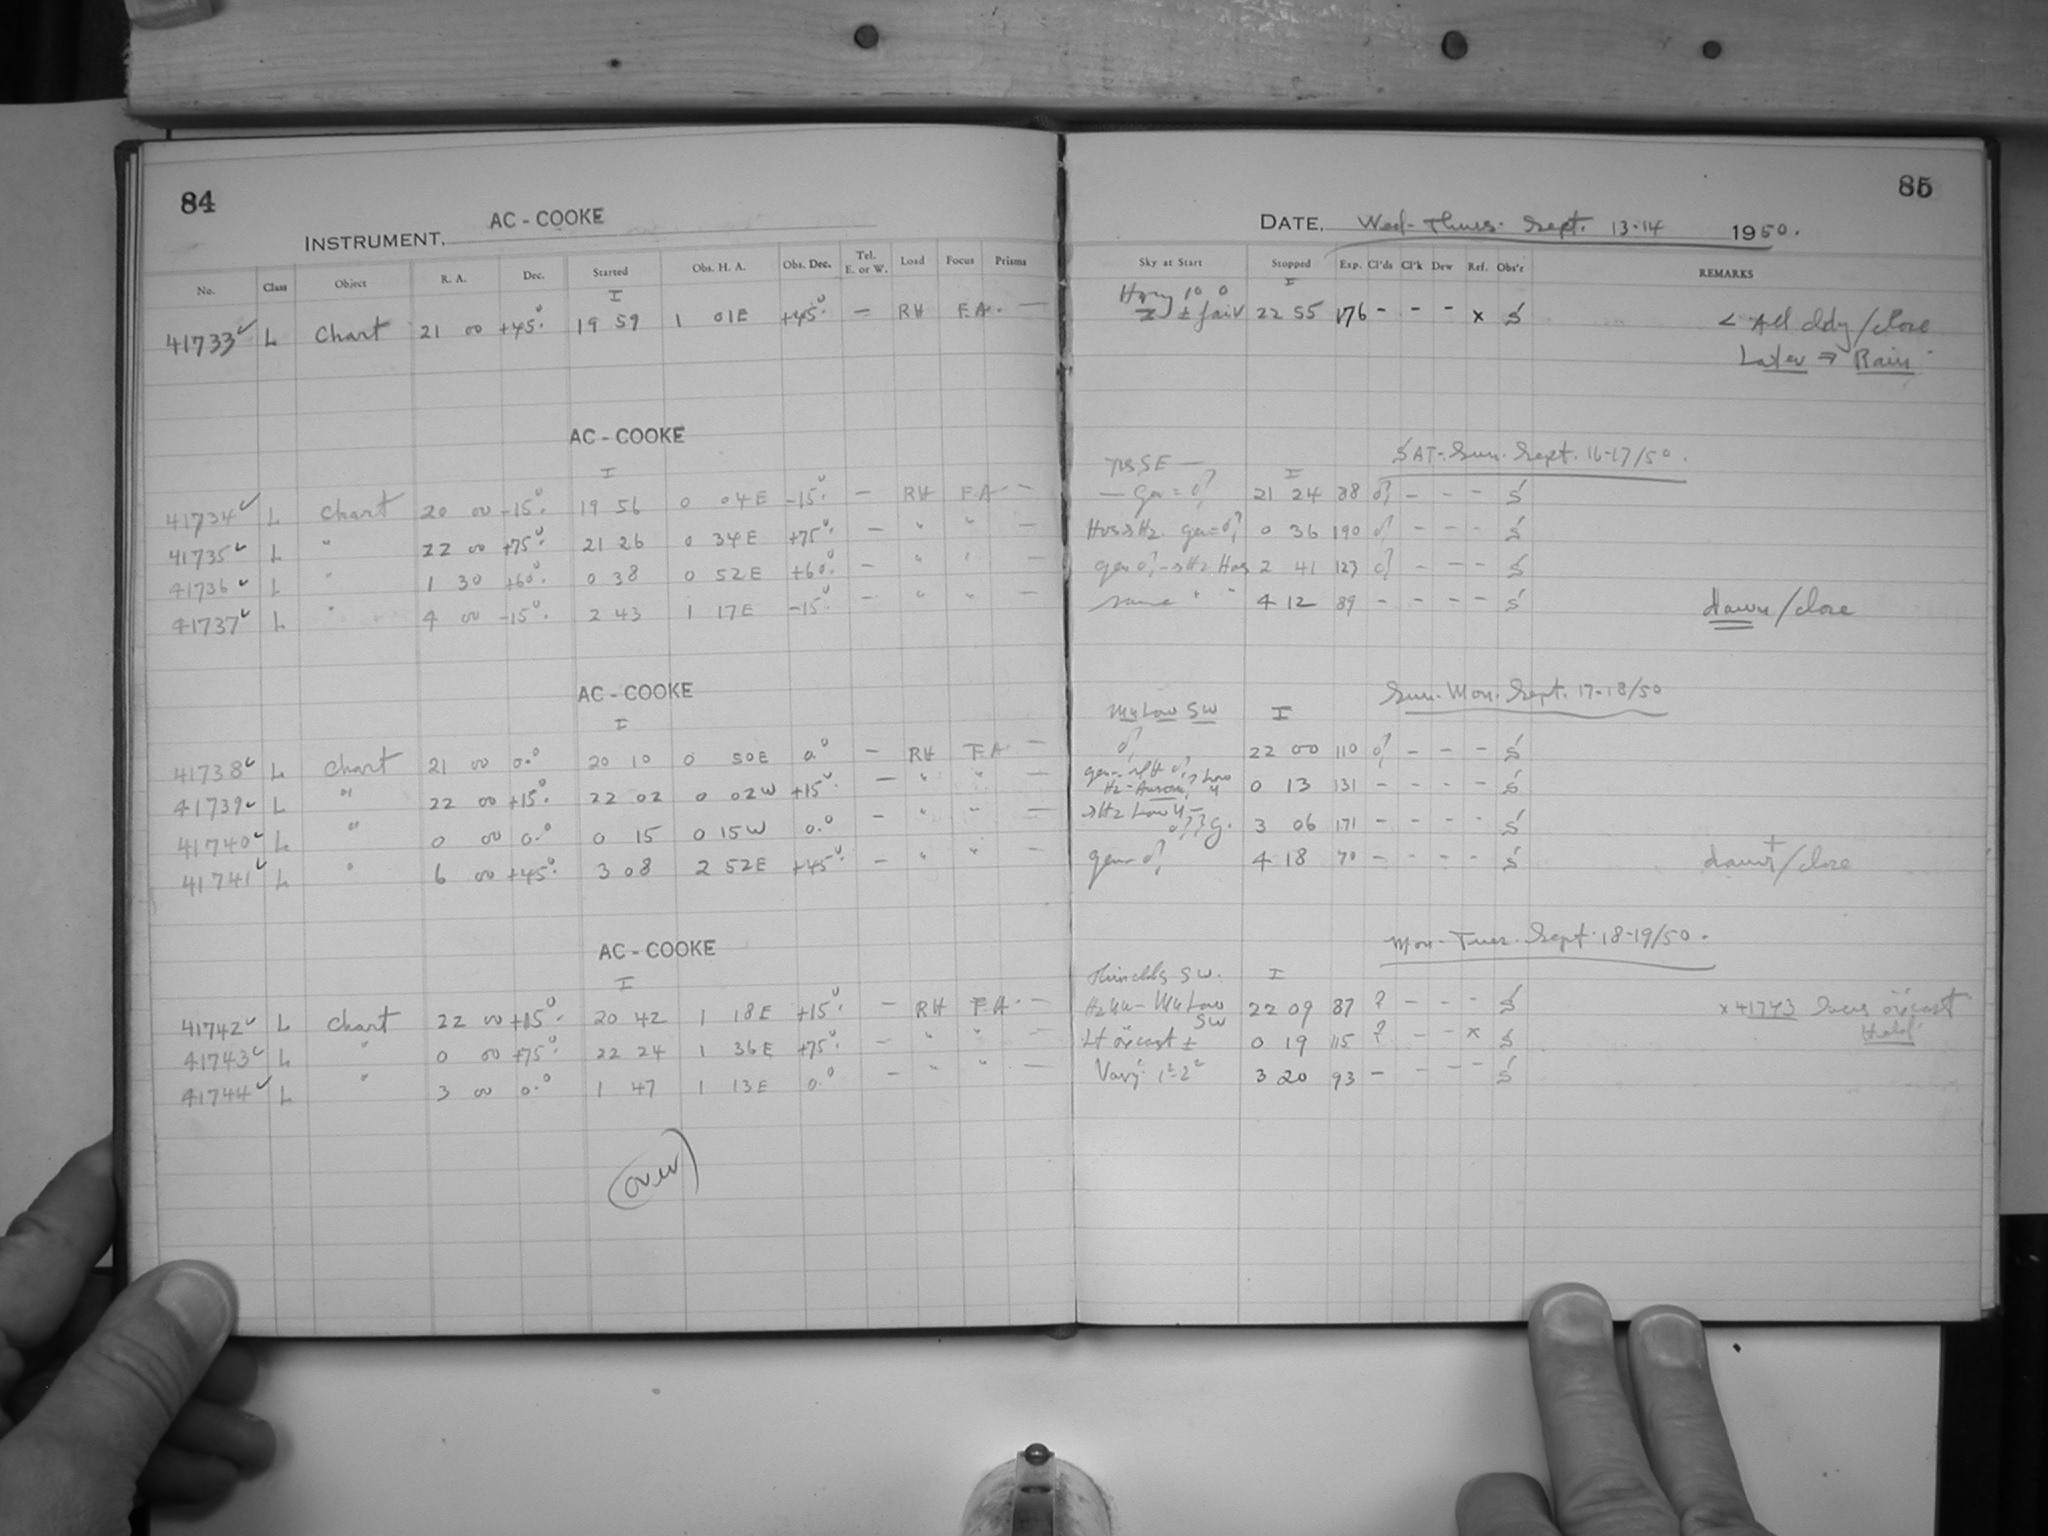 84
85
AC - COOKE
INSTRUMENT,
DATE, Wed- Thurs. Sept. 13-14 1950.
No. Class Object R. A. Dec. Started Obs. H. A. Obs. Dec. Tel. E. or W. Load Focus Prisms Sky at Start Stopped Exp. Cl'ds Cl'k Dew Ref. Obs'r REMARKS
I I
41733 ✓ L Chart 21 00 +45° 19 59 1 01E +45° — RH F.A. — ± fair 22 55 176 - - - x S < All cldy/close
Later ⇒ Rain
AC - COOKE
SAT-Sun. Sept. 16-17/50.
I I
41734 ✓ L Chart 20 00 -15° 19 56 0 04E -15° — RH FA — 21 24 88 - - - S
41735 ✓ L " 22 00 +75° 21 26 0 34E +75° — " " — 0 36 190 - - - S
41736 ✓ L " 1 30 +60° 0 38 0 52E +60° — " " — 2 41 123 - - - S
41737 ✓ L " 4 00 -15° 2 43 1 17E -15° — " " — same " " 4 12 89 - - - - S dawn/close
AC - COOKE
Sun. Mon. Sept. 17-18/50
I Low SW I
41738 ✓ L Chart 21 00 0° 20 10 0 50E 0° — RH FA — 22 00 110 - - - S
41739 ✓ L " 22 00 +15° 22 02 0 02W +15° — " " — 0 13 131 - - - - S
41740 ✓ L " 0 00 0° 0 15 0 15W 0° — " " — 3 06 171 - - - - S
41741 ✓ L " 6 00 +45° 3 08 2 52E +45° — " " — 4 18 70 - - - - S dawn/close
AC - COOKE
Mon- Tues. Sept. 18-19/50.
I SW. I
41742 ✓ L Chart 22 00 +15° 20 42 1 18E +15° — RH FA — Low SW 22 09 87 ? - - - S x 41743
41743 ✓ L " 0 00 +75° 22 24 1 36E +75° — " " — 0 19 115 ? - - x S
41744 ✓ L " 3 00 0° 1 47 1 13E 0° — " " — 3 20 93 - - - - S
(over)